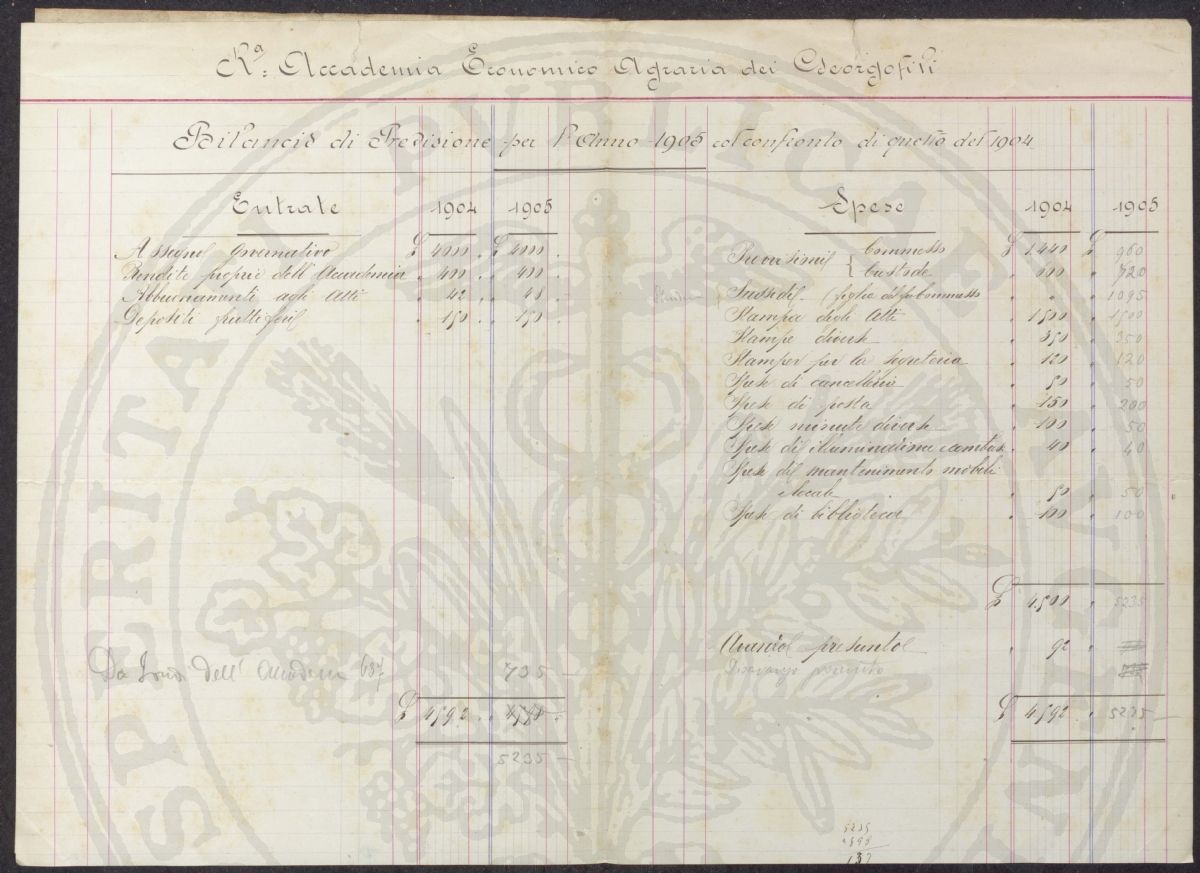 Rª. Accademia Economico Agraria dei Georgofili
Bilancio di Previsione per l'Anno 1905 col confronto di quello del 1904
Entrate 1904 1905
Assegno governativo £ 4000 . £ 4000 .
Rendite proprie dell'Accademia " 400 . " 400 .
Abbuonamenti agli Atti " 42 . " 48 .
Depositi fruttiferi " 150 . " 150 .
Da dell' 637 735 —
£ 4592 . 
5235 —
Spese 1904 1905
Provvisioni { Commesso £ 1.440 £ 960
Custode 720
Sussidi (figlio del fu Commesso " " 1095
Stampa degli Atti " 1500 " 1500
Stampe diverse " 350 " 350
Stampe per la segreteria " 120 " 120
Spese di cancelleria " 50 " 50
Spese di posta " 150 " 200
Spese minute diverse " 100 " 50
Spese di illuminazione " 40 " 40
Spese di mantenimento mobili
e locale " 50 " 50
Spese di biblioteca " 100 " 100
£ 4.500 " 5235
Avanzo presunto " 92 "
Disavanzo presunto
£ 4.592 " 5235 —
5235
SPERITATI PVBLICAE